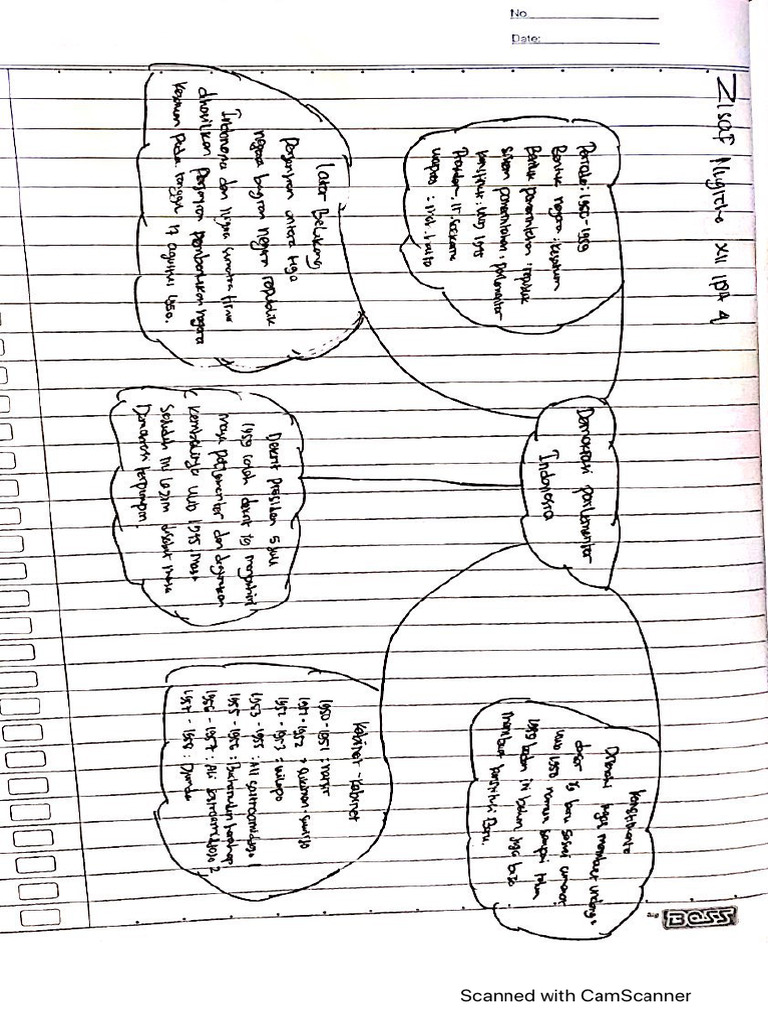 No
Date:
Zisaf Nugraha XII IPA 4
Demokrasi parlementer
Indonesia
Periode: 1950-1959
Bentuk negara: kesatuan
Bentuk pemerintahan: republik
sistem pemerintahan: parlementer
konstitusi: UUD 1945
Presiden: Ir. Soekarno
wapres: Moh. hatta
latar Belakang
Perjanjian antara tiga
negara bagian negara republik
Indonesia dan Negara Sumatra timur
dhasilkan perjanjian pembentukan negara
kesatuan pada tanggal 17 agustus 1950.
Dekrit presiden 5 juli
1959 ialah dekrit yg mengakhiri
masa parlementer dan digunakan
kembalinya UUD 1945. masa
Setelah ini lazim disebut masa
Demokrasi terpimpin
kabinet-kabinet
1950-1951: natsir
1951-1952: sukiman-suwirjo
1952-1953: wilopo
1953-1955: Ali sastroamidjojo 1
1955-1956: Burhanudin harahap
1956-1957: Ali sastroamidjojo 2
1957-1959: Djuanda
konstituante
Diserahi tugas membuat undang-
dasar yg baru sesuai amanat
UUD 1950 namun sampai tahun
1959 badan ini belum juga bisa
membuat konstitusi Baru.
BOSS
Scanned with CamScanner